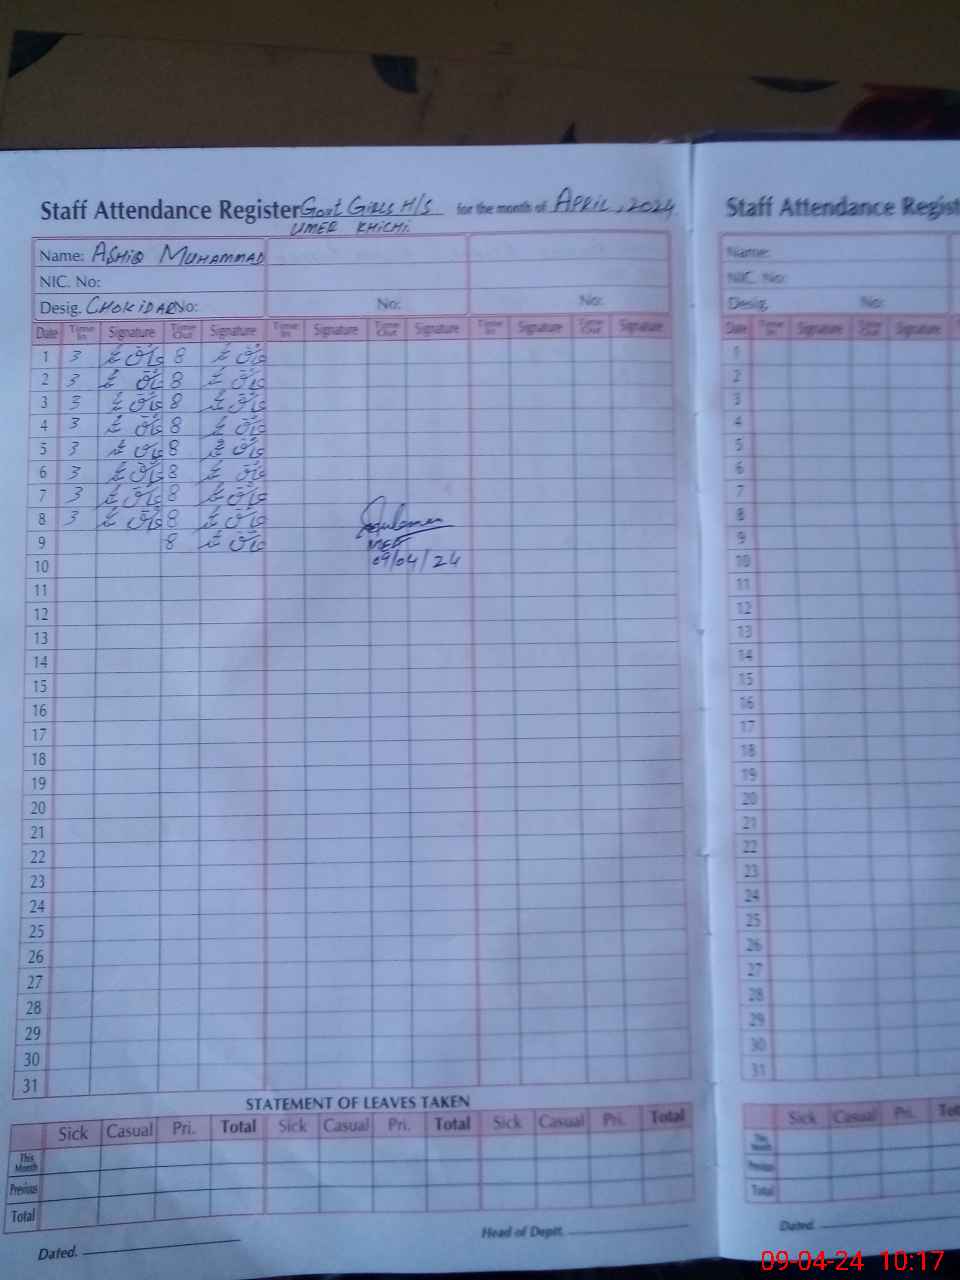 Staff Attendance Register Govt Girls H/S for the month of April, 2024
UMER KHICHI.
Name: ASHIQ MUHAMMAD
NIC. No:
Desig. CHOKIDAR No: No: No:
Date Time In Signature Time Out Signature Time In Signature Time Out Signature Time In Signature Time Out Signature
1 3 عاشق 8 عاشق
2 3 عاشق 8 عاشق
3 3 عاشق 8 عاشق
4 3 عاشق 8 عاشق
5 3 عاشق 8 عاشق
6 3 عاشق 8 عاشق
7 3 عاشق 8 عاشق
8 3 عاشق 8 عاشق
9 8 عاشق
MEA
10 09/04/24
11
12
13
14
15
16
17
18
19
20
21
22
23
24
25
26
27
28
29
30
31
STATEMENT OF LEAVES TAKEN
Sick Casual Pri. Total Sick Casual Pri. Total Sick Casual Pri. Total
This Month
Previous
Total
Dated. Head of Deptt.
Staff Attendance Regist
Name:
NIC. No:
Desig. No:
Date Time In Signature Time Out Signature
1
2
3
4
5
6
7
8
9
10
11
12
13
14
15
16
17
18
19
20
21
22
23
24
25
26
27
28
29
30
31
Sick Casual Pri. Tot
This Month
Previous
Total
Dated.
09-04-24 10:17